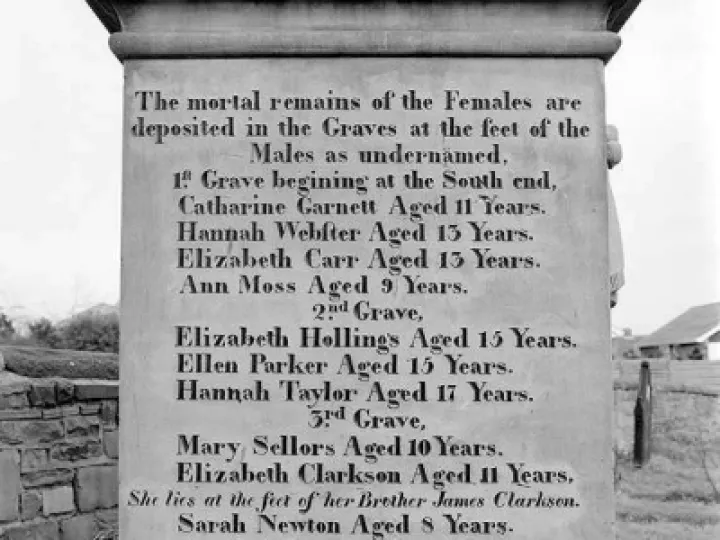 The mortal remains of the Females are
deposited in the Graves at the feet of the
Males as undernamed,
1st Grave begining at the South end,
Catharine Garnett Aged 11 Years.
Hannah Webster Aged 13 Years.
Elizabeth Carr Aged 13 Years.
Ann Moss Aged 9 Years.
2nd Grave,
Elizabeth Hollings Aged 15 Years.
Ellen Parker Aged 15 Years.
Hannah Taylor Aged 17 Years.
3rd Grave,
Mary Sellors Aged 10 Years.
Elizabeth Clarkson Aged 11 Years,
She lies at the feet of her Brother James Clarkson.
Sarah Newton Aged 8 Years.